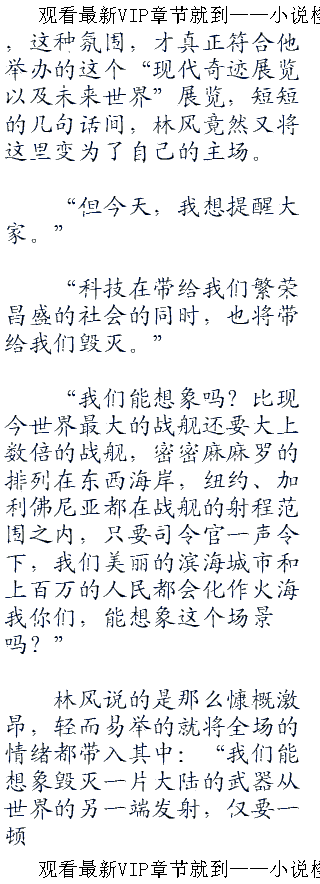 观看最新VIP章节就到——小说
，这种氛围，才真正符合他
举办的这个“现代奇迹展览
以及未来世界”展览，短短
的几句话间，林风竟然又将
这里变为了自己的主场。
“但今天，我想提醒大
家。”
“科技在带给我们繁荣
昌盛的社会的同时，也将带
给我们毁灭。”
“我们能想象吗？比现
今世界最大的战舰还要大上
数倍的战舰，密密麻麻罗的
排列在东西海岸，纽约、加
利佛尼亚都在战舰的射程范
围之内，只要司令官一声令
下，我们美丽的滨海城市和
上百万的人民都会化作火海
我你们，能想象这个场景
吗？”
林风说的是那么慷概激
昂，轻而易举的就将全场的
情绪都带入其中：“我们能
想象毁灭一片大陆的武器从
世界的另一端发射，仅要一
顿
观看最新VIP章节就到——小说